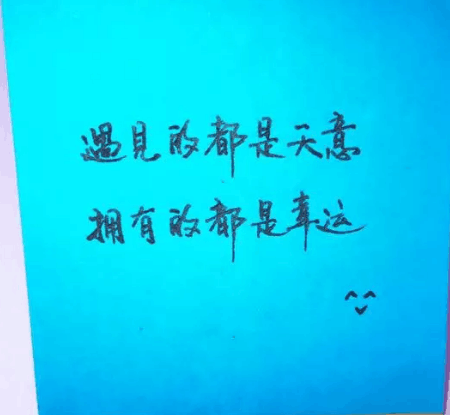 遇見的都是天意
拥有的都是幸运